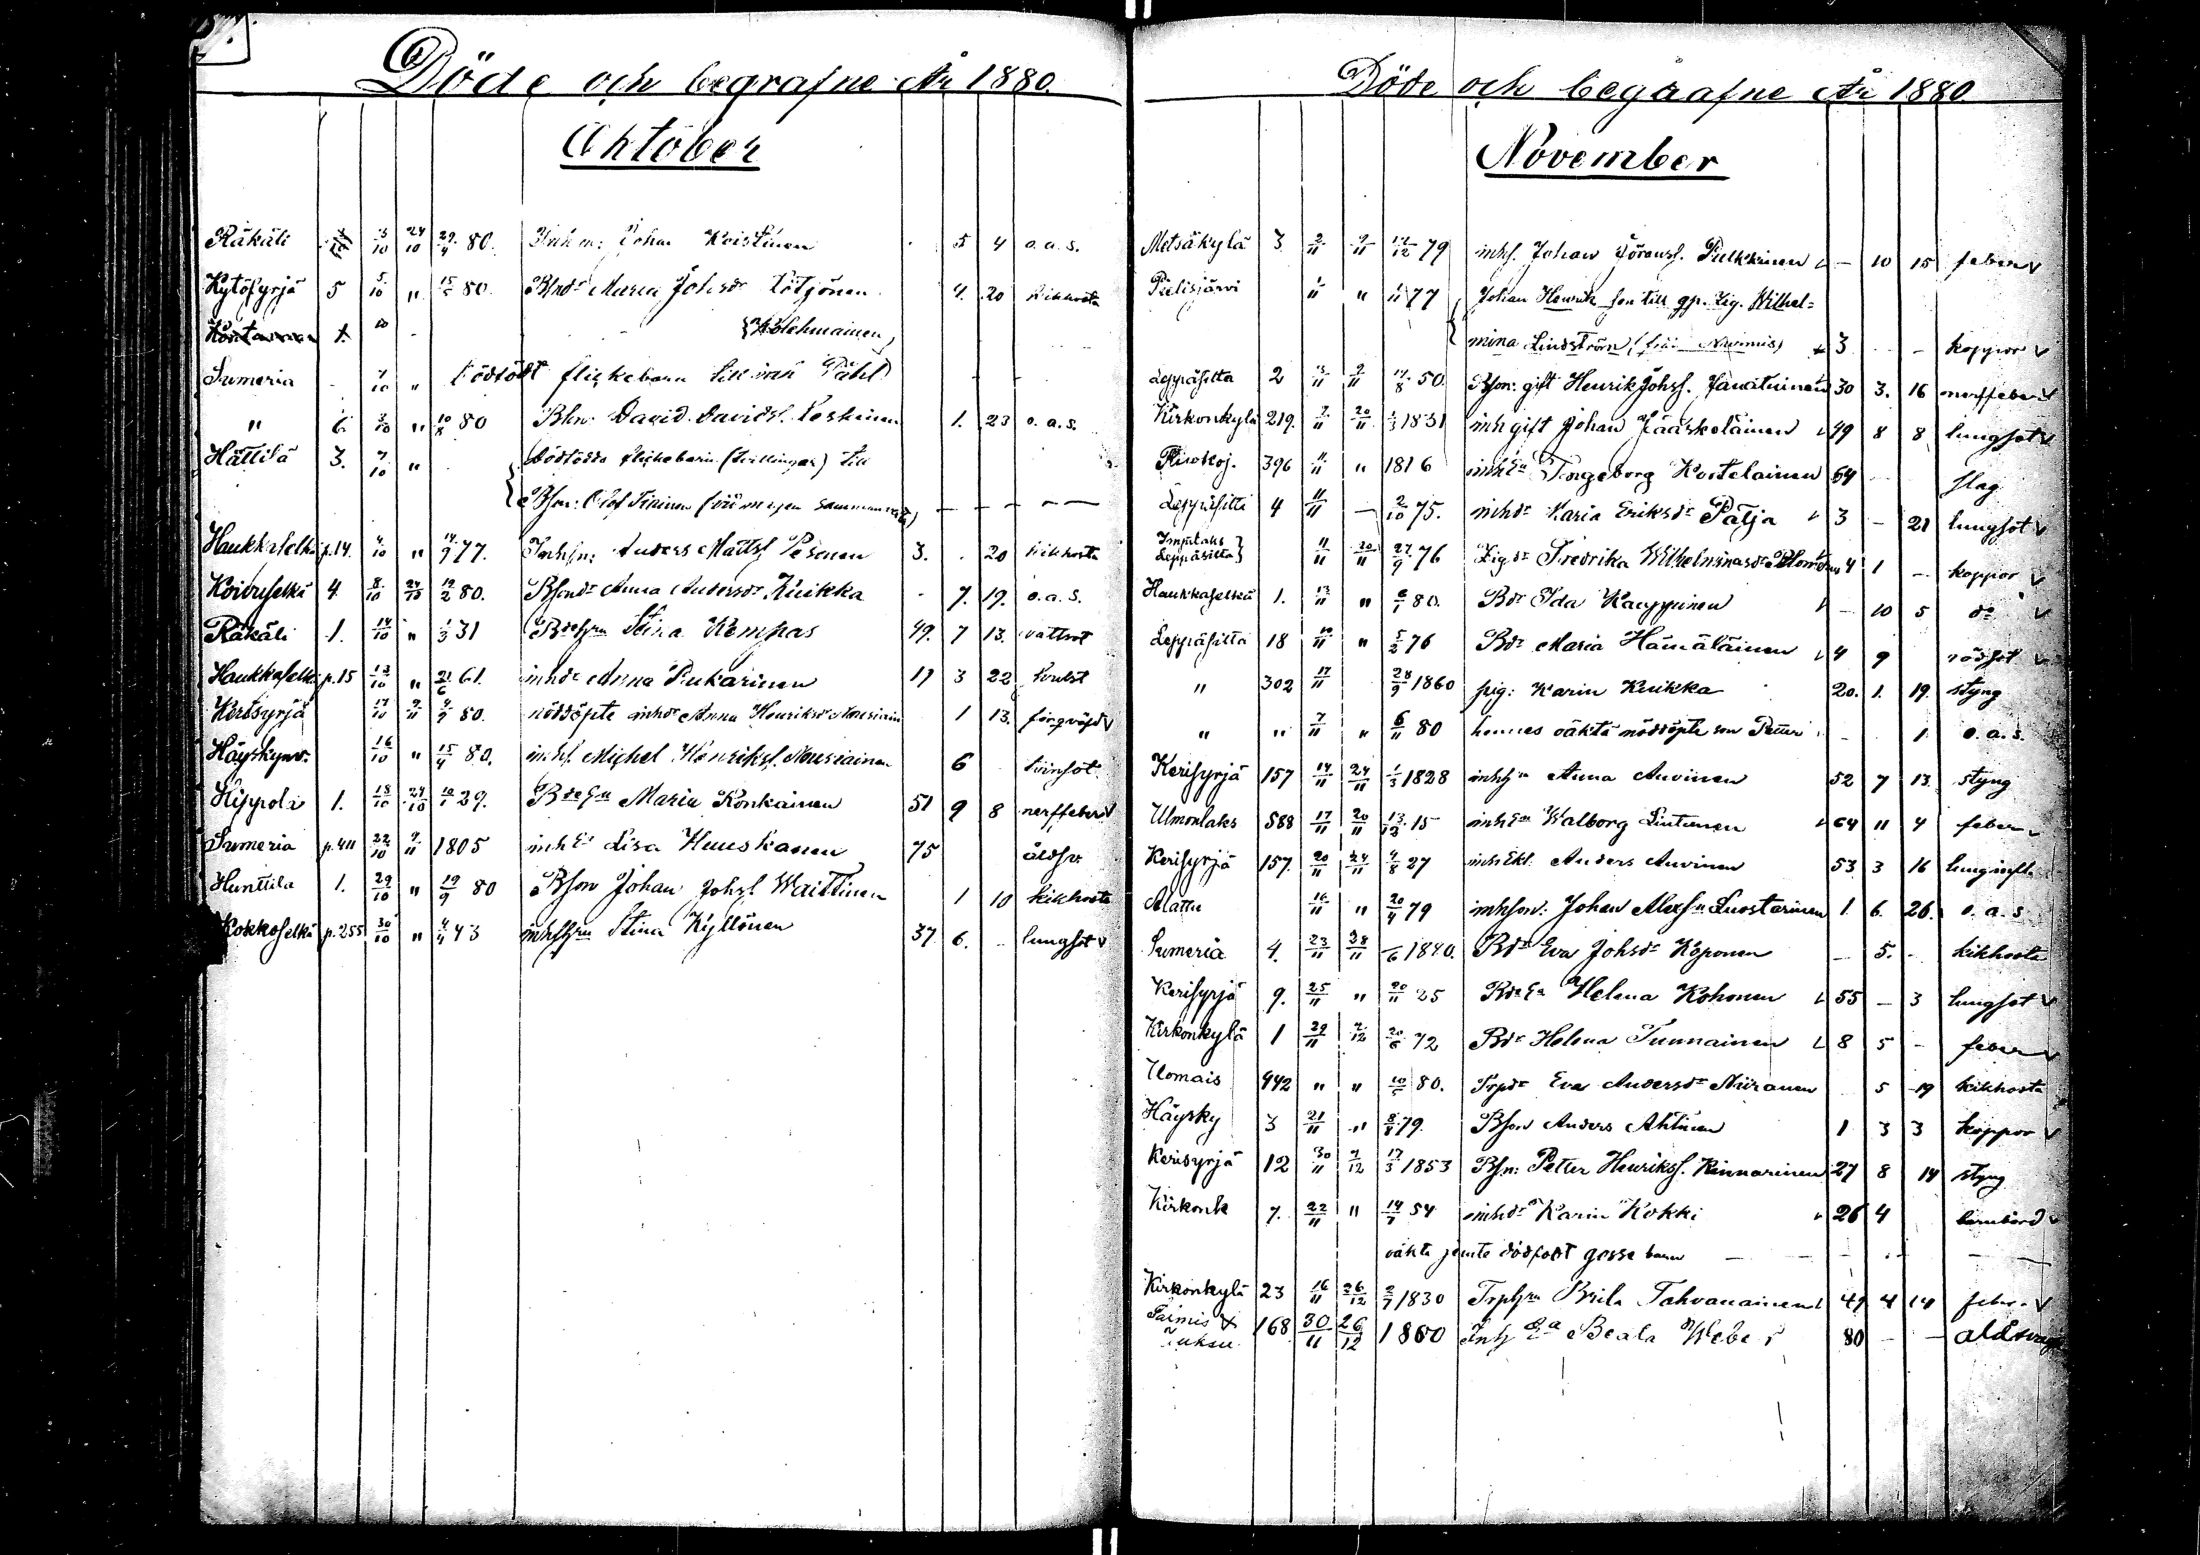 Döde och begrafne År 1880.
Oktober
Räkäli 3/10 24/10 29/4 80. Inh n: Johan Koistinen 5 4 o.a.s.
Kytösyrjä 5 5/10 " 15/5 80. Bsndr Maria Johsdr Pötjönen 4. 20 kikhosta
1. 10 Kolehmainen
Sumeria 7/10 " dödfödt flickebarn till
" 6 3/10 " 10/8 80 Bsn. David Davids. Leskinen 1. 23 o.a.s.
Hättilä 3. 7/10 " dödfödda flickebarn (tvillingar) till
Bson: Olof
Haukkaselkä p.14. 4/10 " 14/9 77. Inhsn: Anders Mattss Pesonen 3. . 20 kikhosta
Koivuselkä 4. 8/10 24/10 19/2 80. Bsondr Anna Andersdr Kuikka - 7. 19. o.a.s.
Räkäli 1. 14/10 " 1/3 31 Bdehru Stina Kempas 49. 7 13. vattsot
Haukkaselkä p.15 13/10 " 21/6 61. inhdr Anna Pukarinen 19 3 22
Kertsyrjä 17/10 9/11 4/9 80. nöddöpte inhdr Anna Henriksdr Nousiain 1 13.
Häyskynv. 16/10 " 15/4 80. inhs. Michel Henrikss. Nousiainen 6
Hippola 1. 18/10 24/10 10/1 29. Bdeha Maria Konkainen 51 9 8 nerffeber v
Sumeria p.411 22/10 9/11 1805 inhEa Lisa Huuskonen 75 åldsv.
Hunttila 1. 29/10 " 19/9 80 Bson Johan Johss. Waittinen 1 10 kikhosta
Kokkoselkä p.255 30/10 " 4/4 43 inhshru Stina Kyllönen 37 6. - lungsot v
Döde och begrafne År 1880
November
Metsäkylä 3 2/11 9/11 17/12 79 inhs. Johan Göranss. Pulkkinen - 10 15 feber v
Pielisjärvi 1/11 " 1/11 77 Johan Henrik son till gp. Pig. Wilhel=
mina Lindström (från Nurmis) 3 - - koppor v
Leppäsilta 2 3/11 9/11 17/8 50. Bson: gift Henrik Johss. 30 3. 16 nerffeber v
Kirkonkylä 219. 7/11 20/11 1/3 1831 inh gift Johan Jääskeläinen 49 8 8 lungsot v
396 4/11 " 1816 inhEa Ingeborg Kortelainen 64 slag
Leppäsilta 4 11/11 - 2/10 75. inhdr Karin Eriksdr Patja 3 - 21 lungsot v
Impilaks
Leppäsilta} 11/11 20/11 27/9 76 Pigdr Fredrika Wilhelminasdr 4 1 - koppor v
Haukkaselkä 1. 13/11 " 6/1 80. Bdr Ida Kauppinen - 10 5 do v
Leppäsilta 18 10/11 " 5/2 76 Bdr Maria Hämäläinen 4 9 rödsot v
" 302 17/11 28/9 1860 pig: Karin Kuikka 20. 1. 19. styng
" " 7/11 " 6/11 80 hennes oäkta nöddöpte son Petter - - 1 o.a.s.
Kerisyrjä 157 14/11 24/11 1/3 1828 inhhru Anna Auvinen 52 7 13. styng
Ulmonlaks 588 17/11 20/11 13/12 15 inhEa Walborg Lintunen 64 11 4 feber v
Kerisyrjä 157. 20/11 24/11 4/8 27 inh Ekl. Anders Auvinen 53 3 16 lunginfl.
Alattu 16/11 " 20/4 79 inhson: Johan Alexsn Luostarinen 1. 6. 26. o.a.s.
Sumeria 4. 23/11 28/11 -/6 1840. Bdr Eva Johsdr Koponen - 5. - kikhosta
Kerisyrjä 9. 25/11 " 20/11 25 BdeEa Helena Kohonen 55 - 3 lungsot v
Kirkonkylä 1 29/11 7/12 20/6 72 Bdr Helena Tunnainen 8 5 - feber v
Uomais 442 " " 10/5 80. Trpdr Eva Andersdr Niiranen 5 19 kikhosta
Häysky 3 21/11 " 8/8 79. Bson Anders Ahtinen 1 3 3 koppor v
Kerisyrjä 12 30/11 7/12 17/3 1853 Bsn: Petter Henrikss. Kinnarinen 27 8 14 styng
Kirkonk 7. 22/11 " 14/7 54 inhdr Karin Kokki 26 4 barnbörd v
oäkta jemte dödfödt gosse barn - - - -
Kirkonkylä 23 16/11 26/12 2/7 1830 Trphru Brita Tahvanainen 49 4 14 feber v
168 30/11 26/12 1800 Inh Ea Beata Weber 80 - - ålds